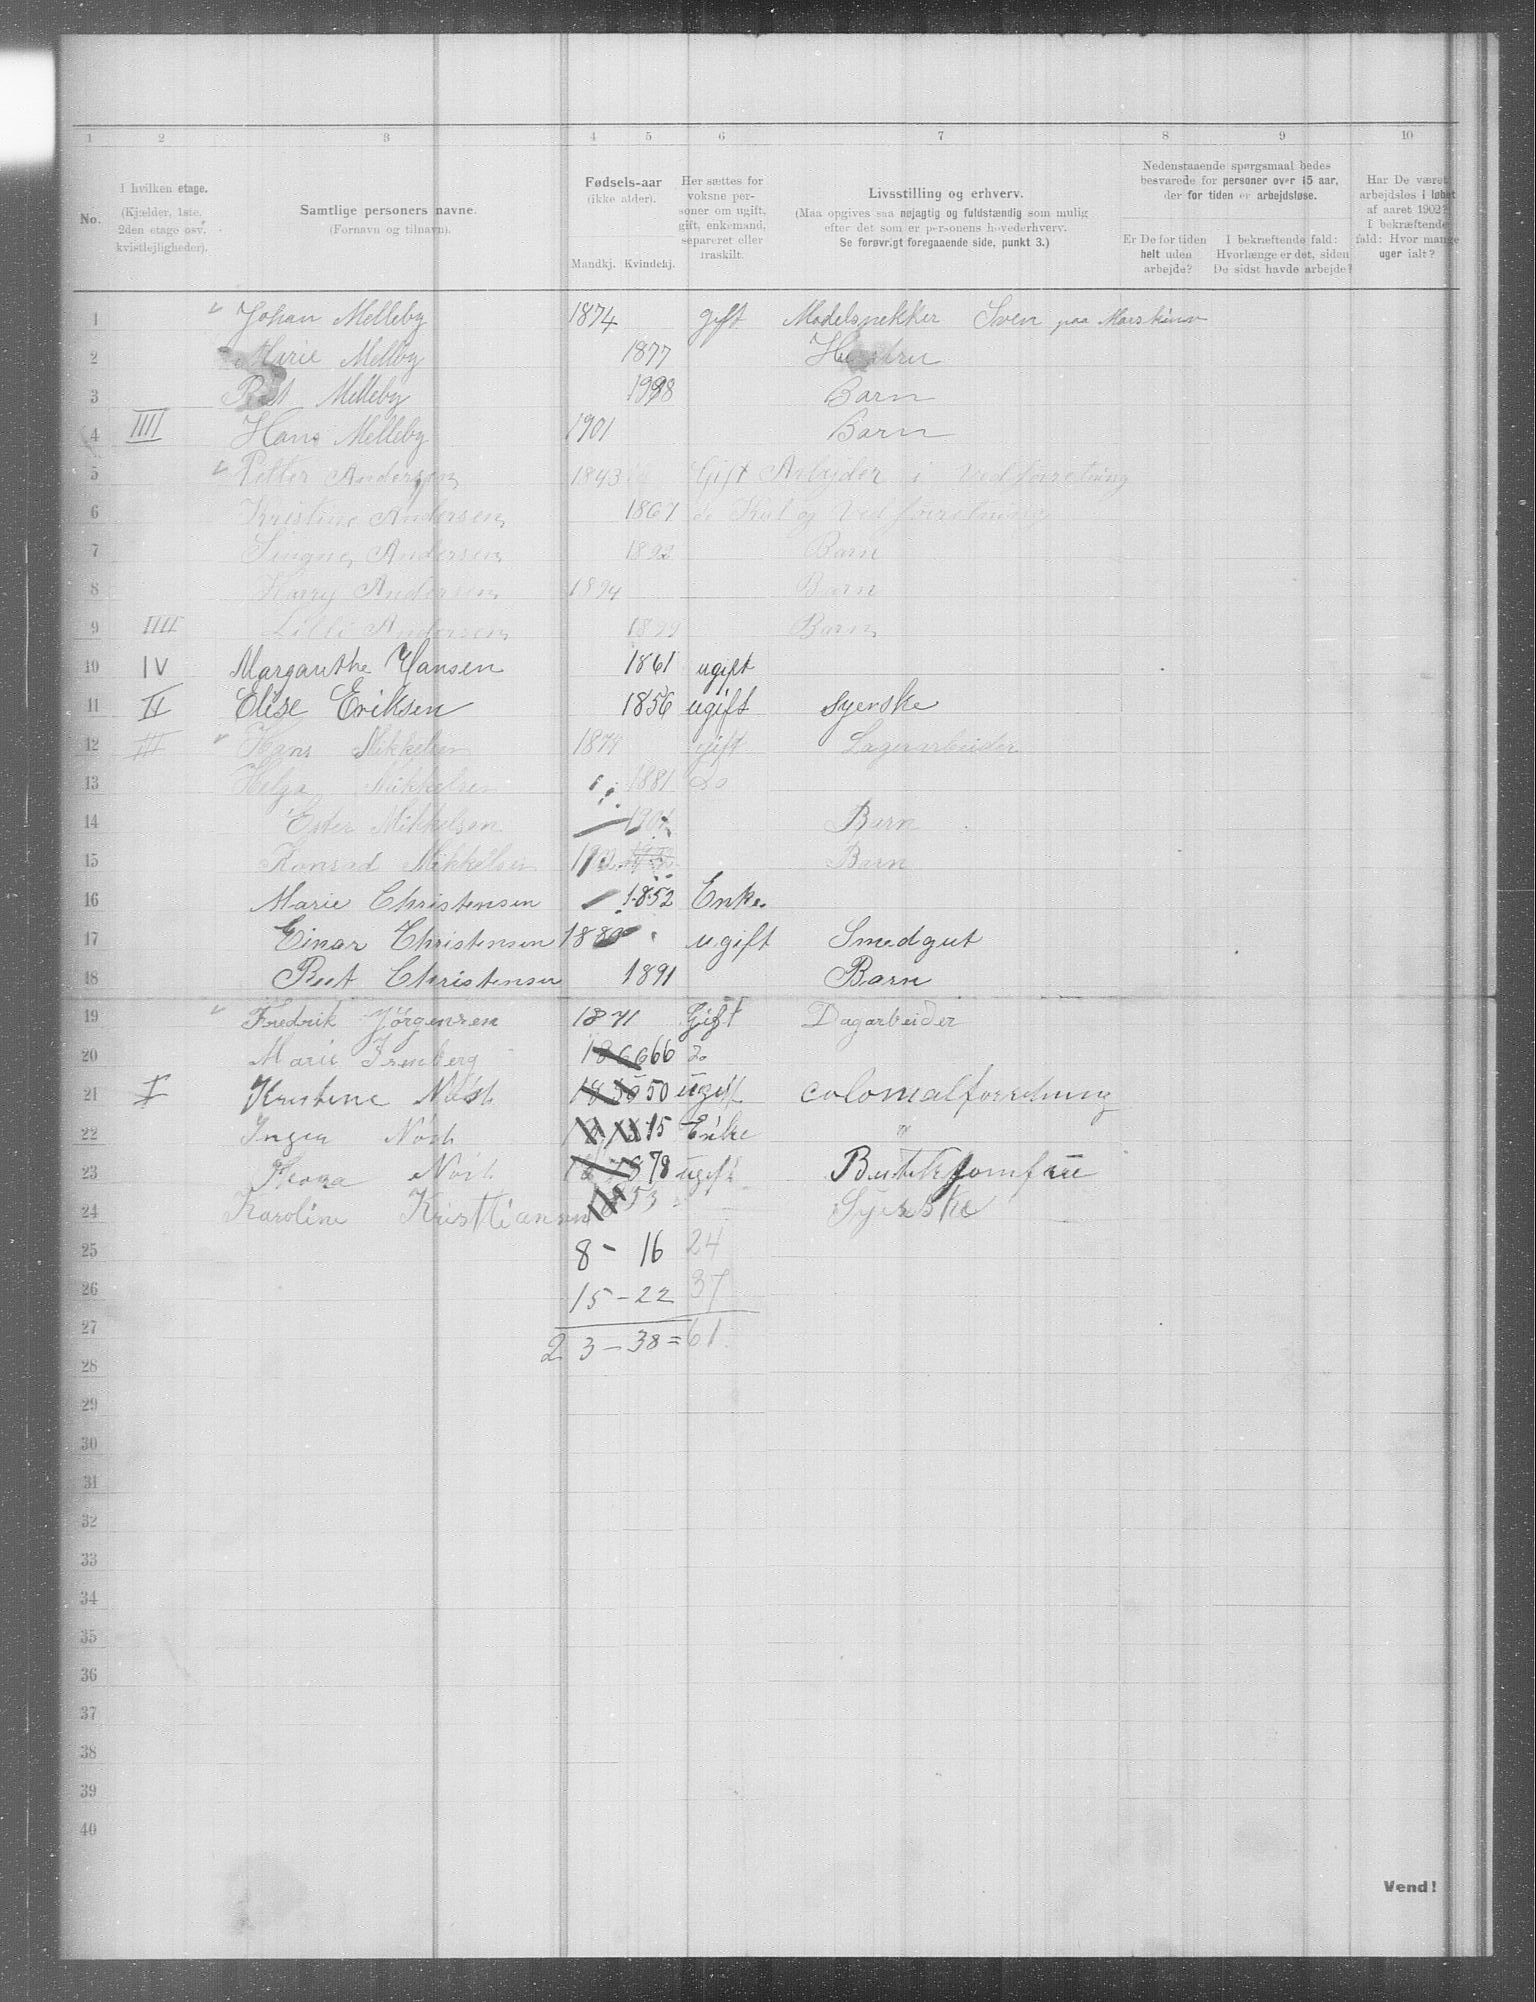 1 2 3 4 5 6 7 8 9 10
No.
I hvilken etage. (Kjælder, 1ste, 2den etage osv. kvistlejligheder).
Samtlige personers navne. (Fornavn og tilnavn).
Fødsels-aar (ikke alder). Mandkj. Kvindekj.
Her sættes for voksne personer om ugift, gift, enkemand, separeret eller fraskilt.
Livsstilling og erhverv. (Maa opgives saa nøjagtig og fuldstændig som mulig efter det som er personens hovederhverv. Se forøvrigt foregaaende side, punkt 3.)
Nedenstaaende spørgsmaal bedes besvarede for personer over 15 aar, der for tiden er arbejdsløse.
Er De for tiden helt uden arbejde?
I bekræftende fald: Hvorlænge er det, siden De sidst havde arbejde?
Har De været arbejdsløs i løbet af aaret 1902? I bekræftende fald: Hvor mange uger ialt?
1 Johan Melleby 1874 gift Modelsnekker Sven paa
2 Marie Melleby 1877
3 Melleby Barn
4 IIII Hans Melleby 1901 Barn
5 Petter Andersen 1843 Gift Arbejder i Vedforretning
6 Kristine Andersen 1867 do Kul og Vedforretning
7 Andersen 1892 Barn
8 Harry Andersen 1894 Barn
9 IIII Lilli Andersen 1899 Barn
10 IV Margarithe Hansen 1861 ugift
11 II Elise Eriksen 1856 ugift Syerske
12 III Hans Mikkelsen gift Lagerarbeider
13 Helga Mikkelsen 1881 do
14 Ester Mikkelsen Barn
15 Konrad Mikkelsen Barn
16 Marie Christensen 1852 Enke.
17 Einar Christensen ugift Smedgut
18 Christensen 1891 Barn
19 Fredrik Jørgensen 1871 Gift Dagarbeider
20 Marie 66 do
21 I Kristine 50 ugift colonialforretning
22 15 Enke "
23 78 ugift Butikjomfru
24 Karoline Kristiansen 53 Syerske
25 8 - 16 24
26 15 - 22 37
27 23 - 38 = 61
28
29
30
31
32
33
34
35
36
37
38
39
40
Vend!